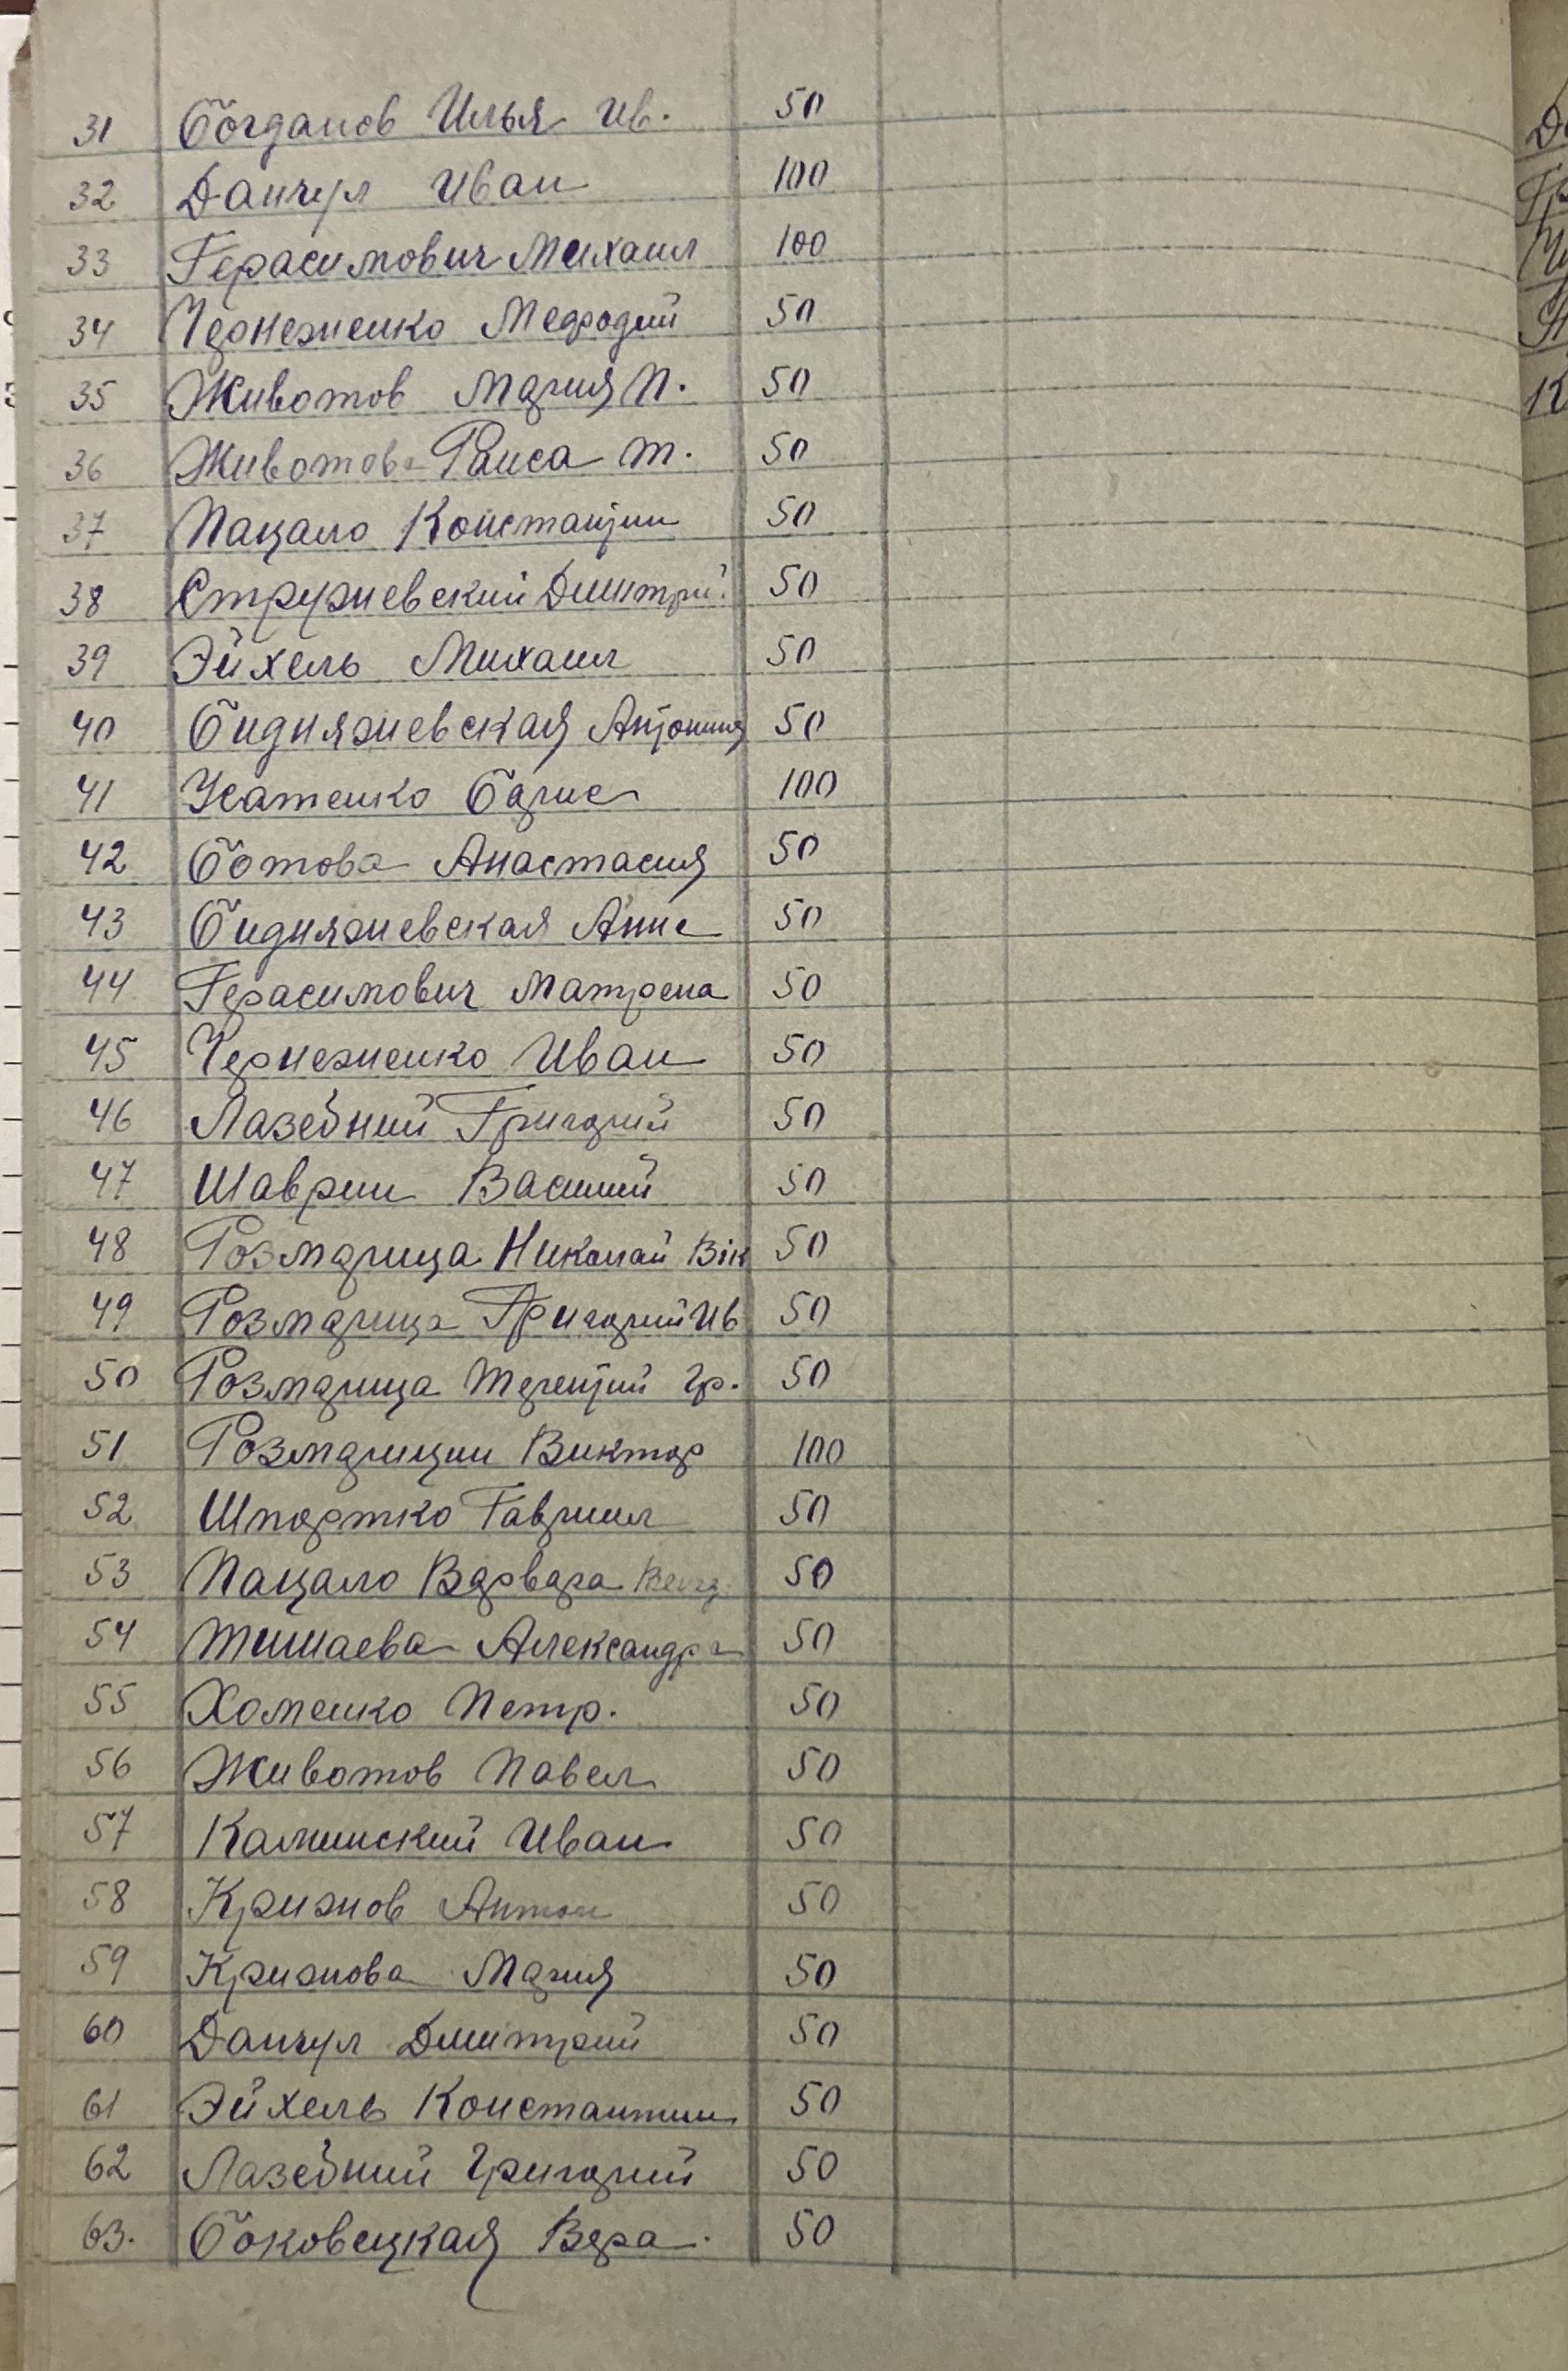 31 Богданов Илья Ив. 50
32 Данчул Иван 100
33 Герасимович Михаил 100
34 Чернеженко Мефодий 50
35 Животов Мария П. 50
36 Животова Раиса Т. 50
37 Пацало Константин 50
38 Стружневский Дмитрий 50
39 Эйхель Михаил 50
40 Бидняжевская Антонина 50
41 Усатенко Борис 100
42 Ботова Анастасия 50
43 Бидняжевская Анна 50
44 Герасимович Матрена 50
45 Чернеженко Иван 50
46 Лазебний Григорий 50
47 Шаврин Василий 50
48 Розмарица Николай Вік 50
49 Розмарица Григорий Ив 50
50 Розмарица Терентий Гр. 50
51 Розмарицин Виктор 100
52 Шпортко Гавриил 50
53 Пацало Варвара 50
54 Тишаева Александра 50
55 Хоменко Петр. 50
56 Животов Павел 50
57 Калинский Иван 50
58 Крижов Антон 50
59 Крижова Мария 50
60 Данчул Дмитрий 50
61 Эйхель Константин 50
62 Лазебний Григорий 50
63. Боковецкая Вера. 50